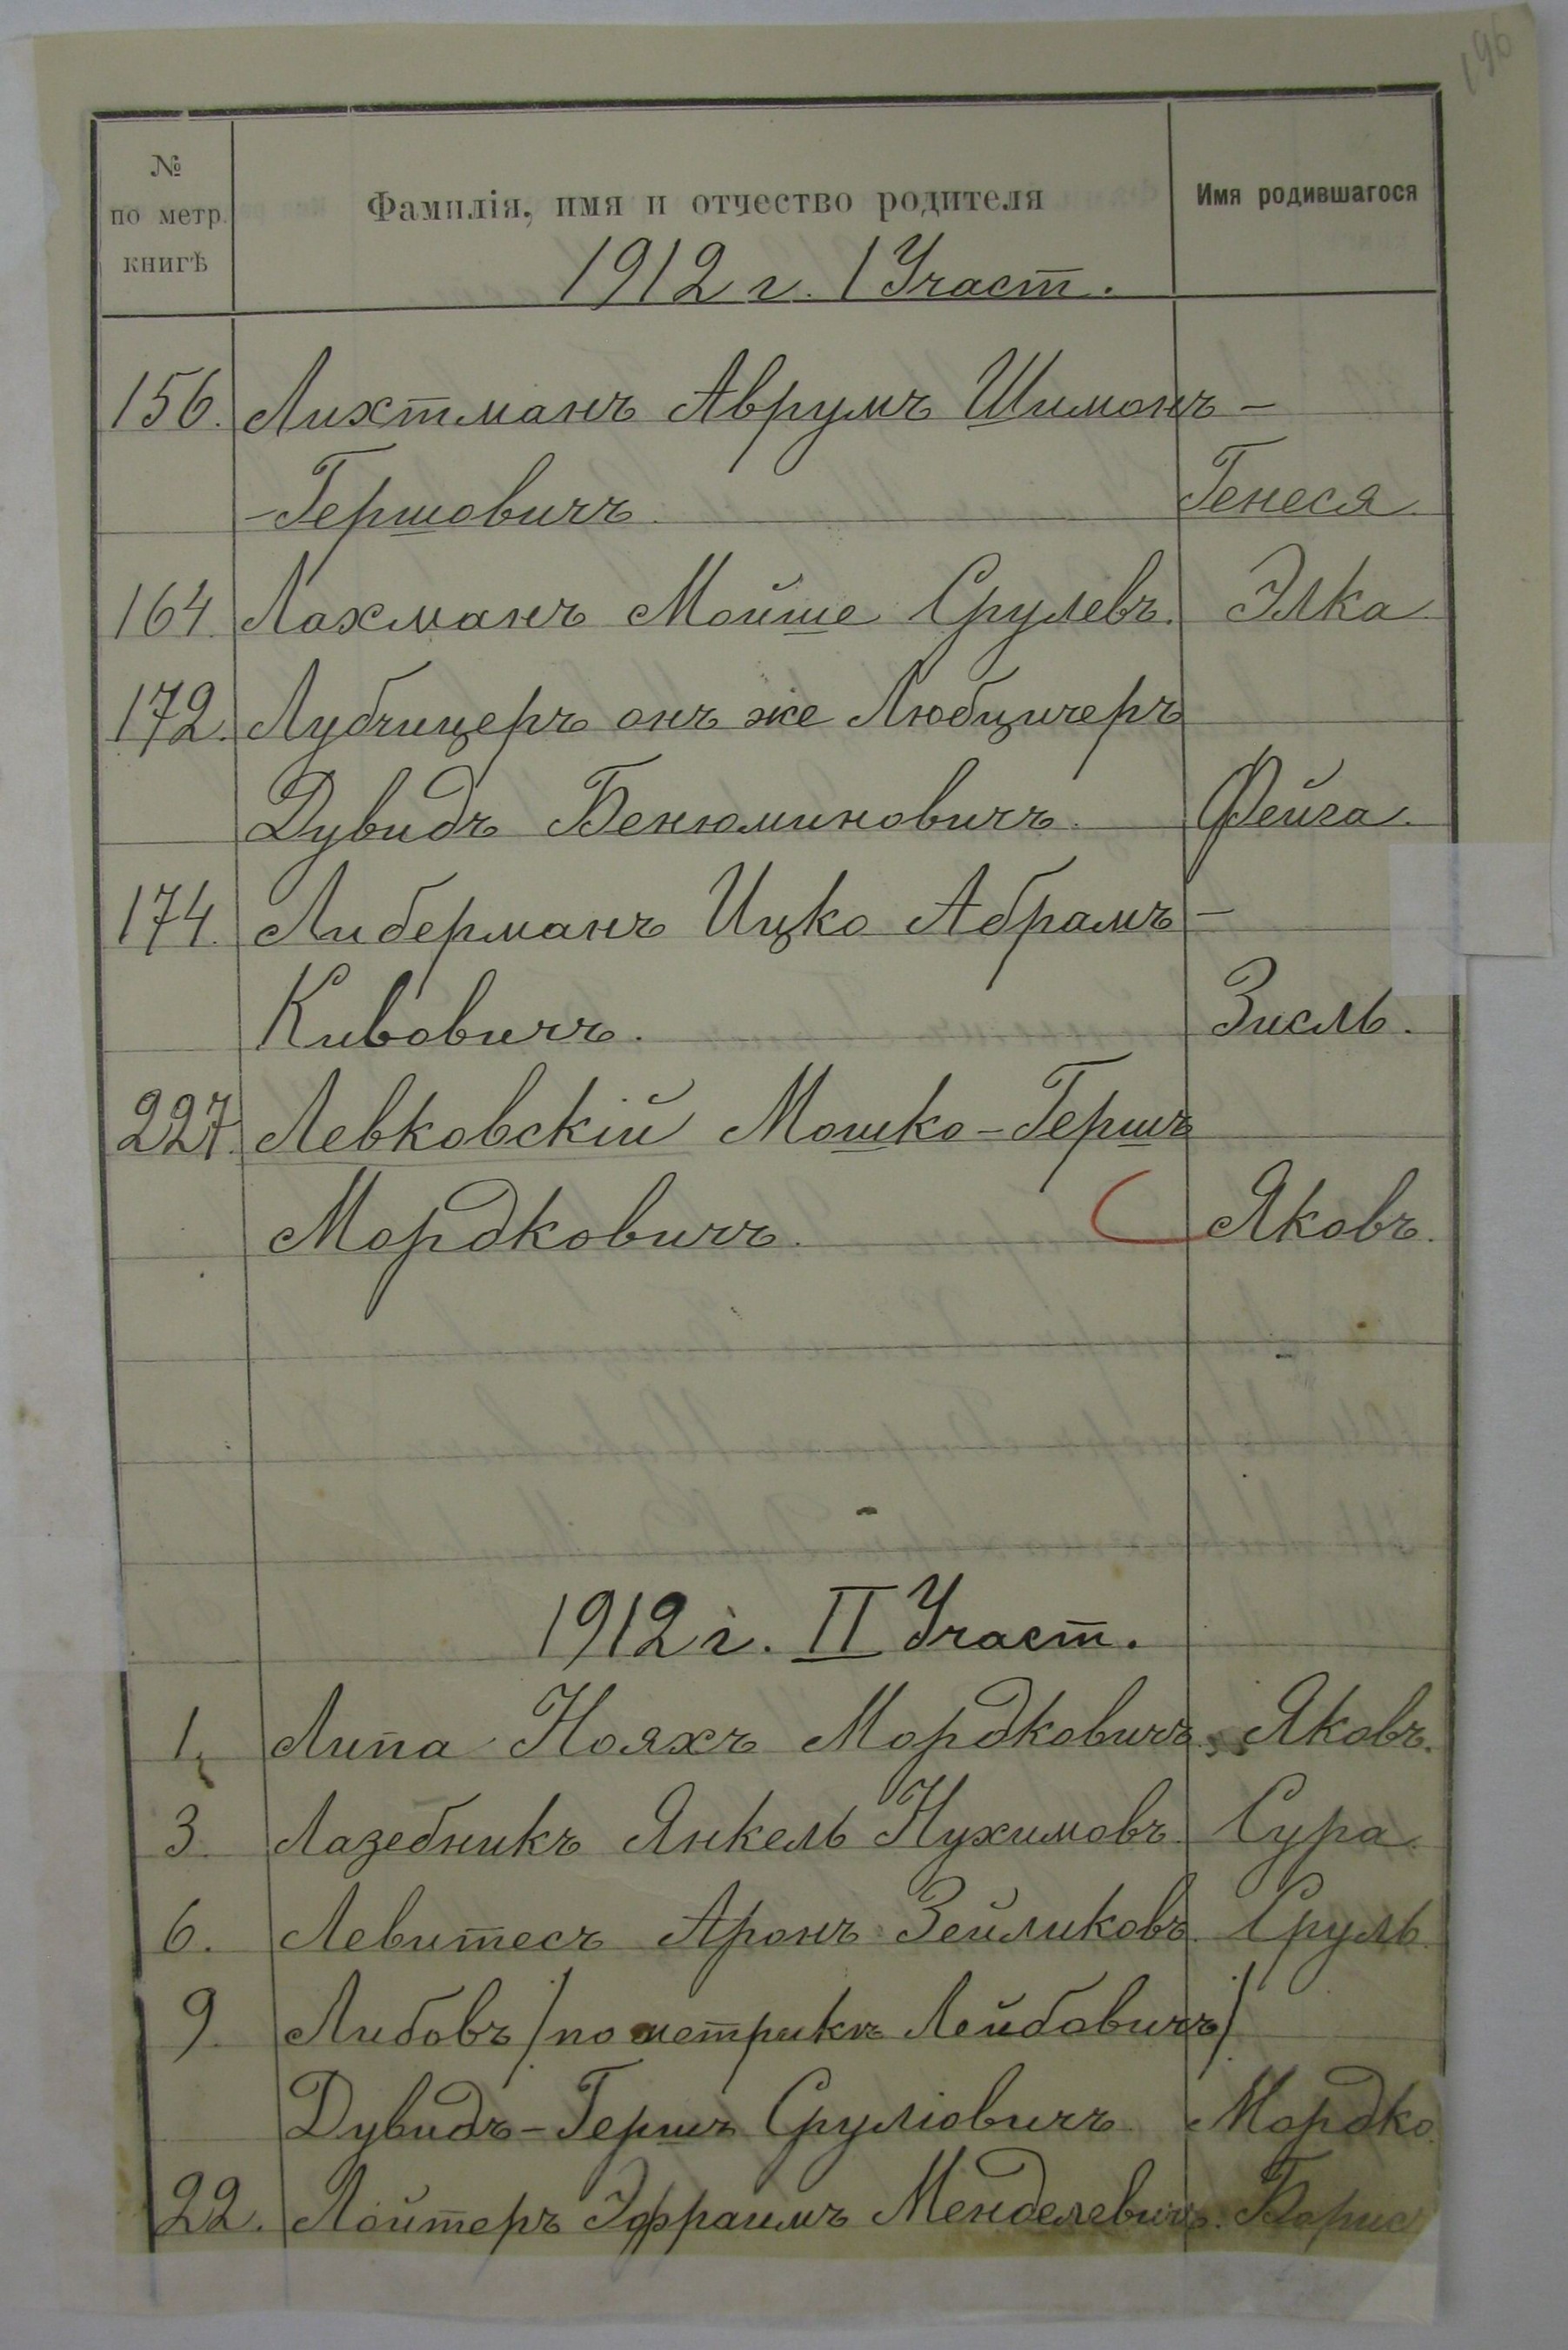 196
№ по метр. книгѣ
Фамилія, имя и отчество родителя
Имя родившагося
1912 г. I Участ.
156. Лихтманъ Аврумъ Шимонъ-
-Гершовичъ. Генеся.
164. Лахманъ Мойше Срулевъ. Элка.
172. Лубчицеръ онъ же Любцичеръ
Дувидъ Бенюминовичъ. Фейга.
174. Либерманъ Ицко Абрамъ-
Кивовичъ. Зисль.
227. Левковскій Мошко-Гершъ
Мордковичъ. Яковъ.
1912 г. II Участ.
1. Липа Нояхъ Мордковичъ. Яковъ.
3. Лазебникъ Янкель Нухимовъ. Сура.
6. Левитесъ Аронъ Зейликовъ. Сруль.
9. Либовъ /по метрикѣ Лейбовичъ/
Дувидъ-Гершъ Сруліовичъ. Мордко.
22. Лойтеръ Эфраимъ Менделевичъ. Борис